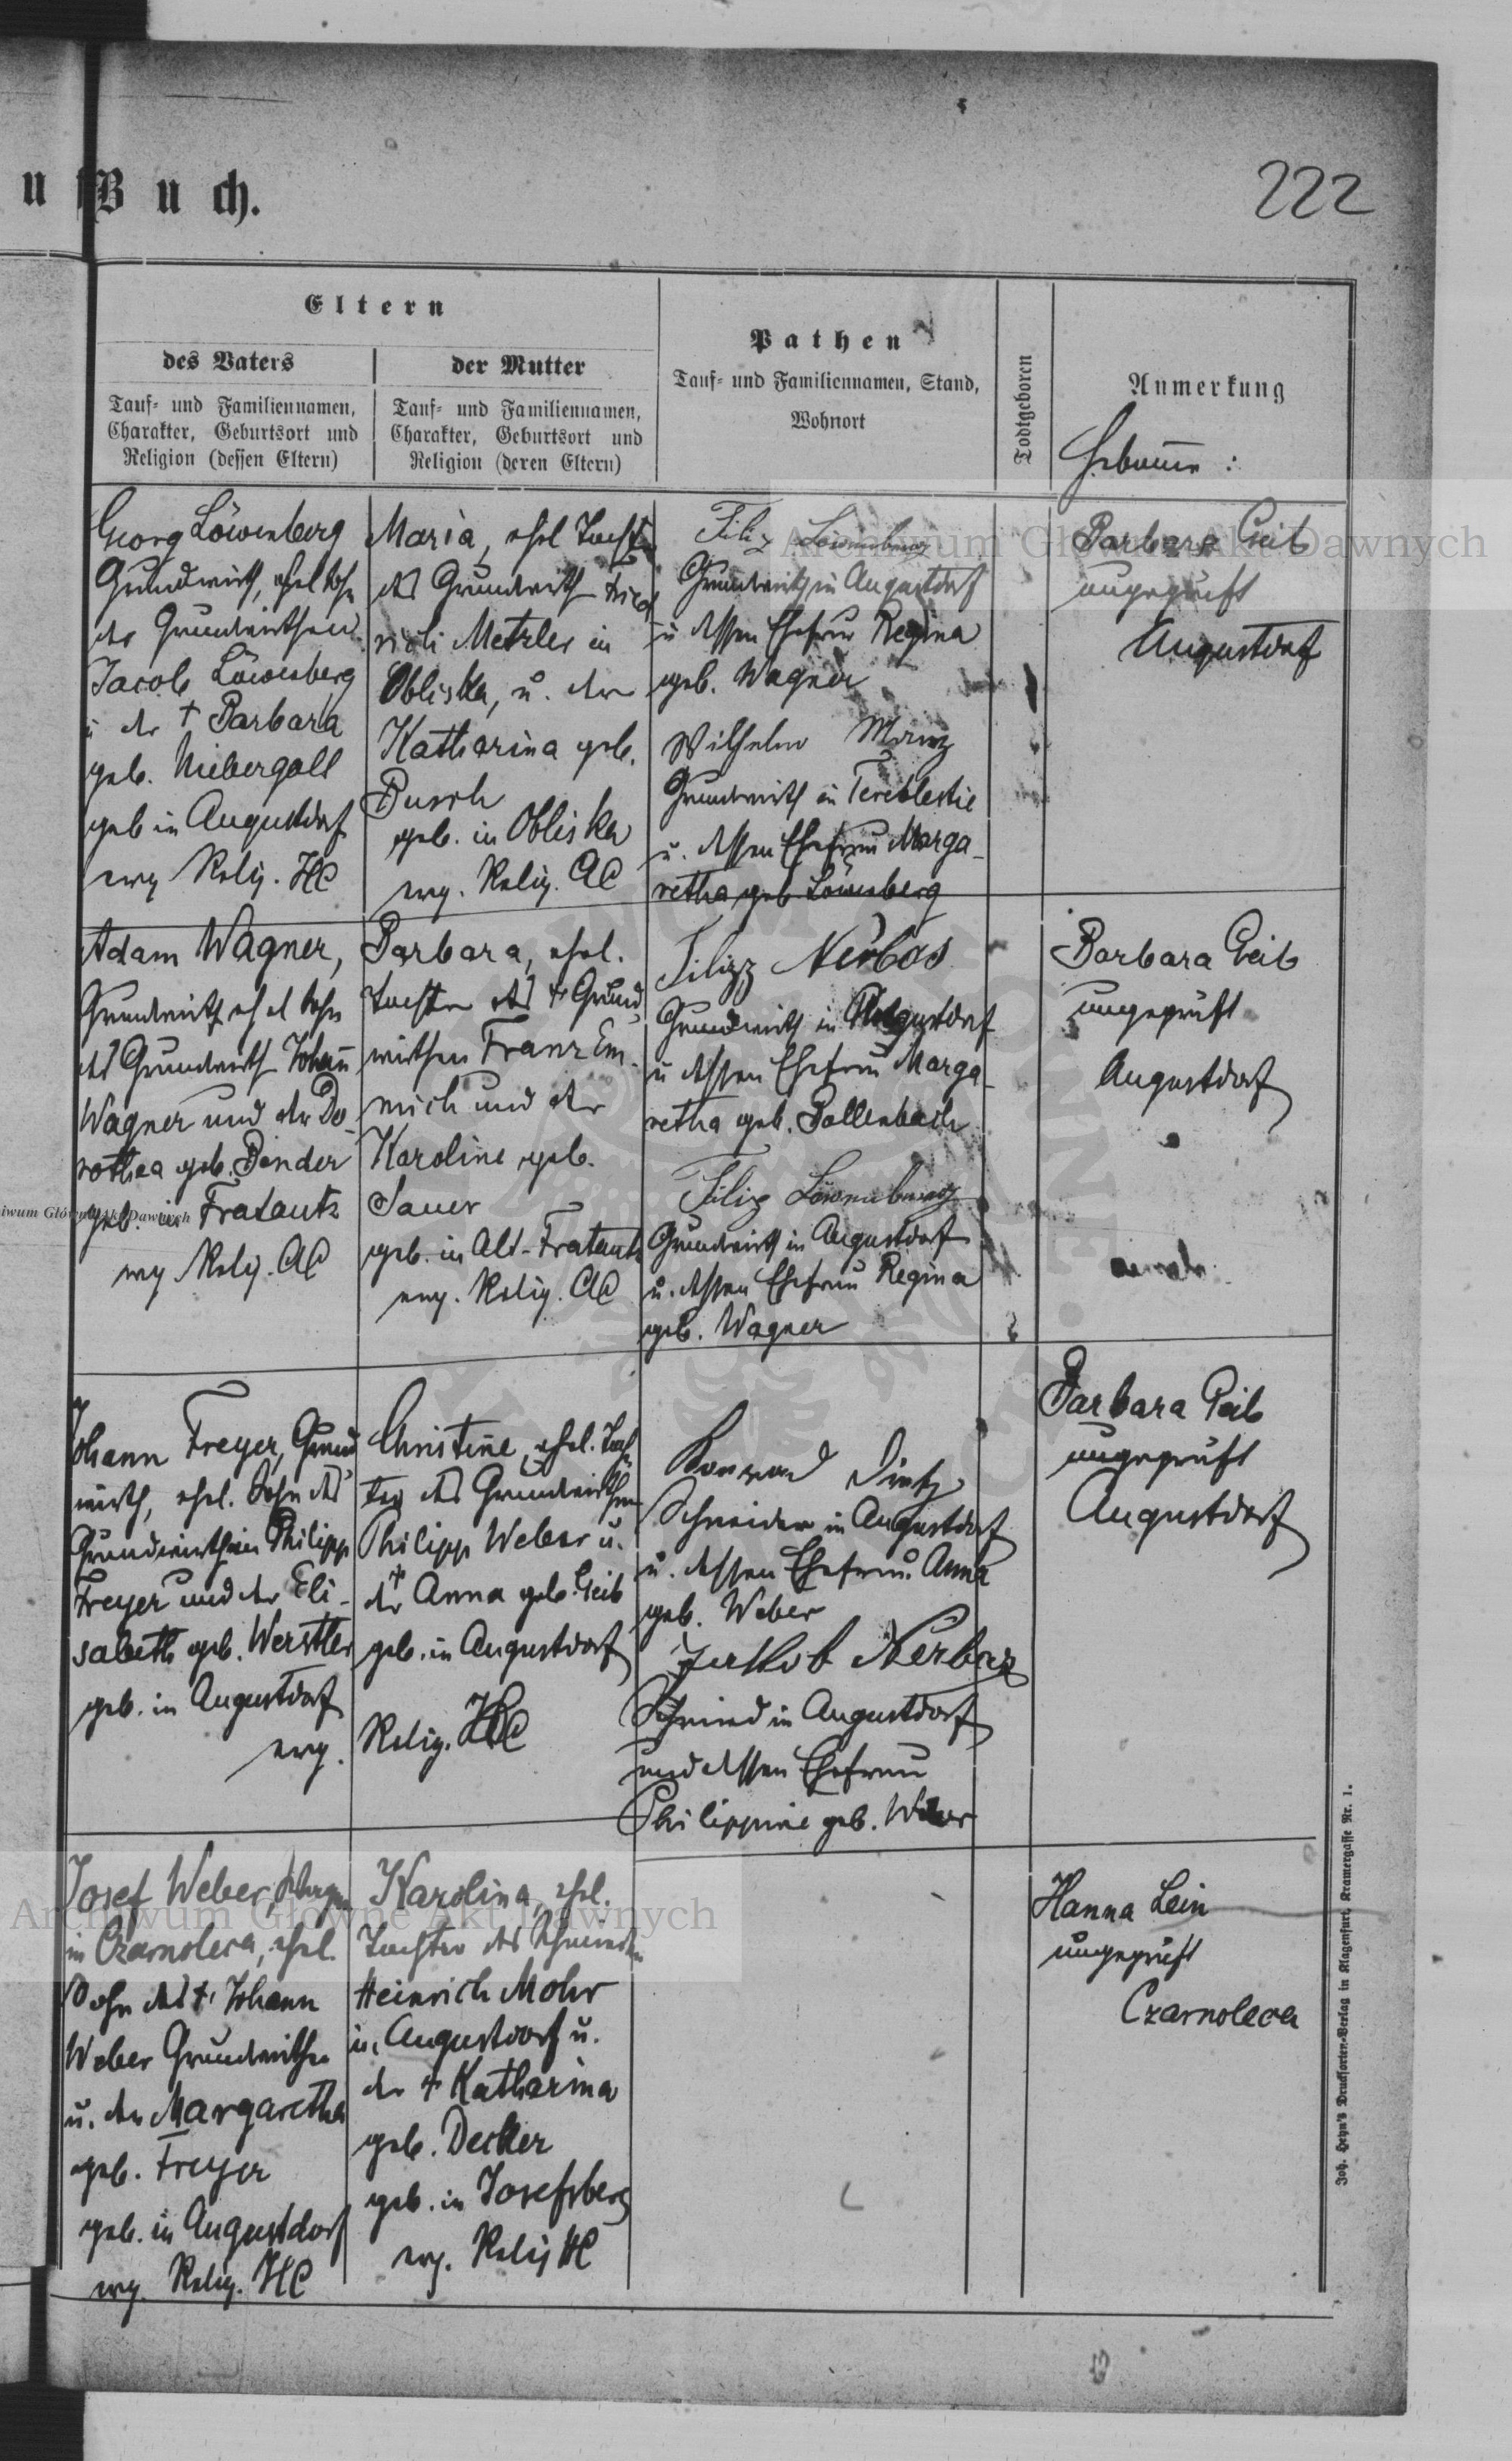 u
Buch.
222
Eltern
des Vaters
der Mutter
Tauf- und Familiennamen,
Charakter, Geburtsort und
Religion (dessen Eltern)
Tauf- und Familiennamen,
Charakter, Geburtsort und
Religion (deren Eltern)
Pathen
Tauf- und Familiennamen, Stand,
Wohnort
Todtgeboren
Anmerkung
Hebamme :
Georg Löwenberg
Grundwirth, ehel Sohn
des Grundwirthen
Jacob Löwenberg
u der † Barbara
geb. Niebergall
geb in Augustdorf
evg Relig. HC
Maria, ehel Tochter
des Grundwirth
Metzler in
Obliska, u. der
Katharina geb.
Busch
geb. in Obliska
evg. Relig. AC
Filip Löwenberg
Grundwirth in Augustdorf
u dessen Ehefrau Regina
geb. Wagner
Wilhelm Manz
Grundwirth in Tereblestie
u. dessen Ehefrau Marga-
retha geb Löwenberg
Barbara Geib
ungeprüft
Augustdorf
Adam Wagner,
Grundwirth ehel Sohn
des Grundwirth Johann
Wagner und der Do-
rothea geb. Bender
geb in Fratautz
evg Relig. AC
Barbara, ehel.
Tochter des † Grund
wirthen Franz Em-
mich und der
Karoline geb.
Sauer
geb. in Alt-Fratautz
evg. Relig. AC
Filipp Nerbas
Grundwirth in Augustdorf
u dessen Ehefrau Marga-
retha geb. Bollenbach
Filip Löwenberg
Grundwirth in Augustdorf
u. dessen Ehefrau Regina
geb. Wagner
Barbara Geib
ungeprüft
Augustdorf
Johann Freyer, Grund
wirth, ehel. Sohn des
Grundwirthen Philipp
Freyer und der Eli-
sabeth geb. Werstler
geb. in Augustdorf
evg.
Christine, ehel. Toch
ter des Grundwirthen
Philipp Weber u.
der † Anna geb. Geib
geb. in Augustdorf
Relig. HC
Konrad Dietz
Schneider in Augustdorf
u. dessen Ehefrau Anna
geb. Weber
Jakob Nerbas
Schmied in Augustdorf
und dessen Ehefrau
Philippine geb. Weber
Barbara Geib
ungeprüft
Augustdorf
Josef Weber,
in Czarnoleca, ehel.
Sohn des † Johann
Weber Grundwirthen
u. der Margaretha
geb. Freyer
geb. in Augustdorf
evg. Relig. HC
Karolina, ehel.
Tochter des Schmieden
Heinrich Mohr
in Augustdorf u.
der † Katharina
geb. Decker
geb. in Josefsberg
evg. Relig HC
Hanna Lein
ungeprüft
Czarnoleca
Joh. Heyn's Drucksorten-Verlag in Klagenfurt, Kramergasse Nr. 1.
Archiwum Główne Akt Dawnych
Archiwum Główne Akt Dawnych